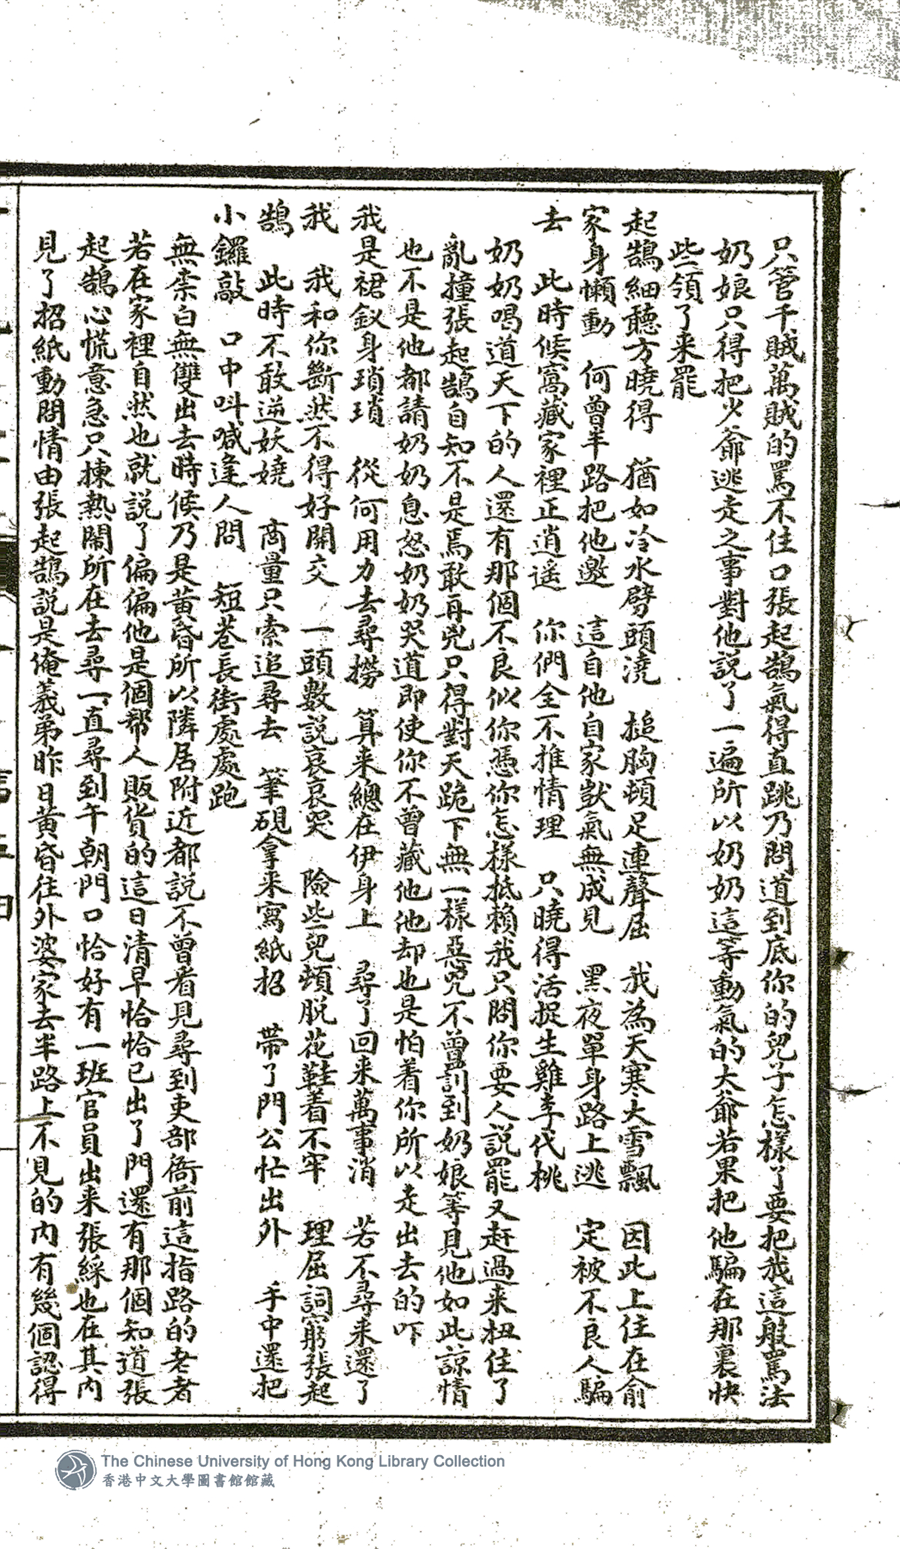 只管千賊萬賊的罵不住口張起鵠氣得直跳乃問道到底你的兒子怎樣了要把我這般罵法
奶娘只得把少爺逃走之事對他說了一遍所以奶奶這等動氣的大爺若果把他騙在那裏快
些領了來罷
起鵠細聽方曉得 猶如冷水劈頭澆 搥胸頓足連聲屈 我為天寒大雪飄 因此上住在俞
家身懶動 何曾半路把他邀 這自他自家獃氣無成見 黑夜單身路上逃 定被不良人騙
去 此時候窩藏家裡正逍遙 你們全不推情理 只曉得活捉生雞李代桃
奶奶喝道天下的人還有那個不良似你憑你怎樣抵賴我只問你要人說罷又赶過來扭住了
亂撞張起鵠自知不是焉敢再兇只得對天跪下無一樣惡咒不曾罰到奶娘等見他如此諒情
也不是他都請奶奶息怒奶奶哭道即使你不曾藏他他却也是怕着你所以走出去的吓
我是裙釵身瑣瑣 從何用力去尋撈 算來總在伊身上 尋了回來萬事消 若不尋來還了
我 我和你斷然不得好開交 一頭數說哀哀哭 險些兒頓脫花鞋着不牢 理屈詞窮張起
鵠 此時不敢逆妖嬈 商量只索追尋去 筆硯拿來寫紙招 帶了門公忙出外 手中還把
小鑼敲 口中叫喊逢人問 短巷長街處處跑
無柰白無雙出去時候乃是黃昏所以隣居附近都說不曾看見尋到吏部衙前這指路的老者
若在家裡自然也就說了偏偏他是個幫人販貨的這日清早恰恰已出了門還有那個知道張
起鵠心慌意急只揀熱鬧所在去尋一直尋到午朝門口恰好有一班官員出來張綵也在其內
見了招紙動問情由張起鵠說是俺義弟昨日黃昏往外婆家去半路上不見的內有幾個認得
The Chinese University of Hong Kong Library Collection
香港中文大學圖書館館藏